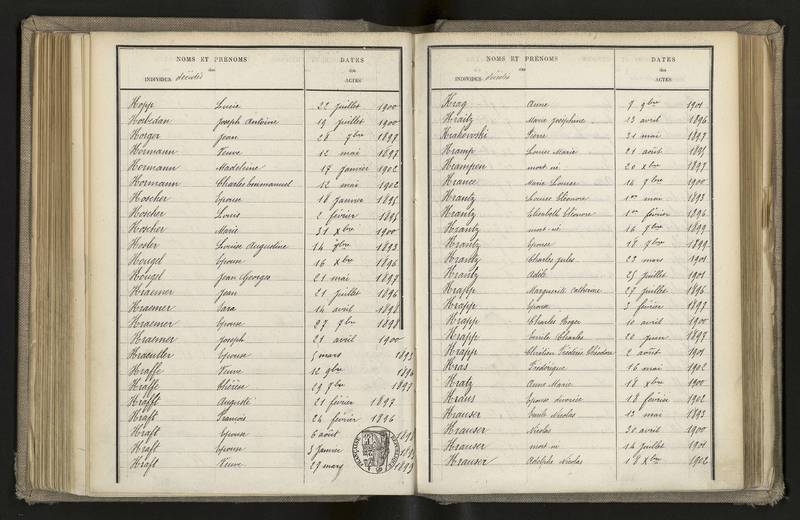 NOMS ET PRÉNOMS DATES
des des
INDIVIDUS décédés ACTES
Hopp Lucie 22 juillet 1900
Horbedan Joseph Antoine 19 juillet 1900
Horger Jean 28 9bre 1897
Hormann Veuve 12 mai 1897
Hormann Madeleine 17 janvier 1902
Hormann Charles Emmanuel 12 mai 1902
Hoscher Epouse 18 janvier 1895
Hoscher Louis 2 février 1896
Hoscher Marie 31 Xbre 1900
Hosler Louise Augustine 14 9bre 1893
Hougel Epouse 16 Xbre 1896
Hougel Jean Georges 21 mai 1897
Kraemer Jean 21 juillet 1896
Kraemer Sara 14 avril 1898
Kraemer Epouse 27 9bre 1898
Kraemer Joseph 21 avril 1900
Epouse 5 mars 1893
Kraffe Veuve 12 9bre
Kraffe Thérèse 19 9bre 1897
Krafft Auguste 21 février 1897
Kraft François 24 février 1896
Kraft Epouse 6 août 1893
Kraft Epouse 3 janvier
Kraft Veuve 29 mars 1893
NOMS ET PRÉNOMS DATES
des des
INDIVIDUS décédés ACTES
Krag Anne 9 9bre 1901
Kraitz Marie Joséphine 13 avril 1896
Krakowski Pierre 31 mai 1897
Kramp Louise Marie 21 août 1895
Krampon mort né 20 Xbre 1897
Krance Marie Louise 14 9bre 1900
Krantz Louise Eléonore 1er mai 1893
Krantz Elisabeth Eléonore 1er février 1896
Krantz mort né 16 9bre 1899
Krantz Epouse 18 9bre 1899
Krantz Charles Jules 23 mars 1901
Krantz Adèle 25 juillet 1901
Krapp Marguerite Catherine 27 juillet 1896
Krapp Epouse 3 février 1897
Krapp Charles Roger 10 avril 1900
Krapp Emile Charles 20 juin 1897
Krapp Chrétien Frédéric Théodore 2 août 1901
Kras Frédérique 16 mai 1902
Kratz Anne Marie 18 Xbre 1900
Kraus Epouse divorcée 18 février 1902
Krauser Emile Nicolas 13 mai 1893
Krauser Nicolas 30 avril 1900
Krauser mort né 14 juillet 1901
Krauser Adolphe Nicolas 18 Xbre 1902